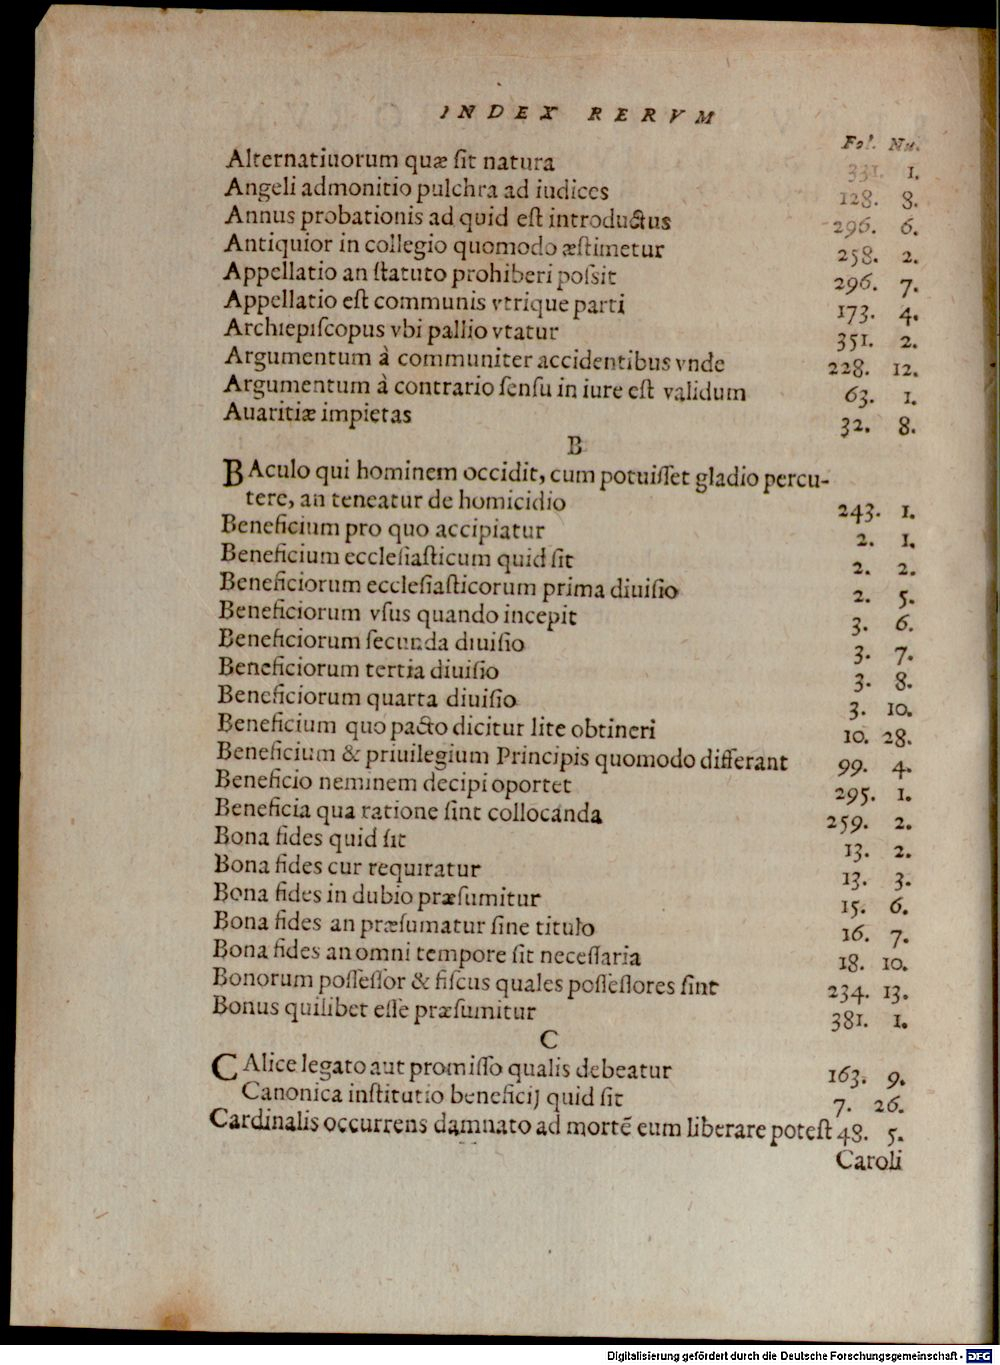 INDEX RERVM
Fol. Nu.
Alternatiuorum quæ ſit natura 331. 1.
Angeli admonitio pulchra ad iudices 128. 8.
Annus probationis ad quid eſt introductus 296. 6.
Antiquior in collegio quomodo æſtimetur 258. 2.
Appellatio an ſtatuto prohiberi poſsit 296. 7.
Appellatio eſt communis vtrique parti 173. 4.
Archiepiſcopus vbi pallio vtatur 351. 2.
Argumentum à communiter accidentibus vnde 228. 12.
Argumentum à contrario ſenſu in iure eſt validum 63. 1.
Auaritiæ impietas 32. 8.
B
BAculo qui hominem occidit, cum potuiſſet gladio percu-
tere, an teneatur de homicidio 243. 1.
Beneficium pro quo accipiatur 2. 1.
Beneficium eccleſiaſticum quid ſit 2. 2.
Beneficiorum eccleſiaſticorum prima diuiſio 2. 5.
Beneficiorum vſus quando incepit 3. 6.
Beneficiorum ſecunda diuiſio 3. 7.
Beneficiorum tertia diuiſio 3. 8.
Beneficiorum quarta diuiſio 3. 10.
Beneficium quo pacto dicitur lite obtineri 10. 28.
Beneficium & priuilegium Principis quomodo differant 99. 4.
Beneficio neminem decipi oportet 295. 1.
Beneficia qua ratione ſint collocanda 259. 2.
Bona fides quid ſit 13. 2.
Bona fides cur requiratur 13. 3.
Bona fides in dubio præſumitur 15. 6.
Bona fides an præſumatur ſine titulo 16. 7.
Bona fides an omni tempore ſit neceſſaria 18. 10.
Bonorum poſſeſſor & fiſcus quales poſſeſſores ſint 234. 13.
Bonus quilibet eſſe præſumitur 381. 1.
C
CAlice legato aut promiſſo qualis debeatur 163. 9.
Canonica inſtitutio beneficij quid ſit 7. 26.
Cardinalis occurrens damnato ad mortẽ eum liberare poteſt 48. 5.
Caroli
Digitalisierung gefördert durch die Deutsche Forschungsgemeinschaft - DFG